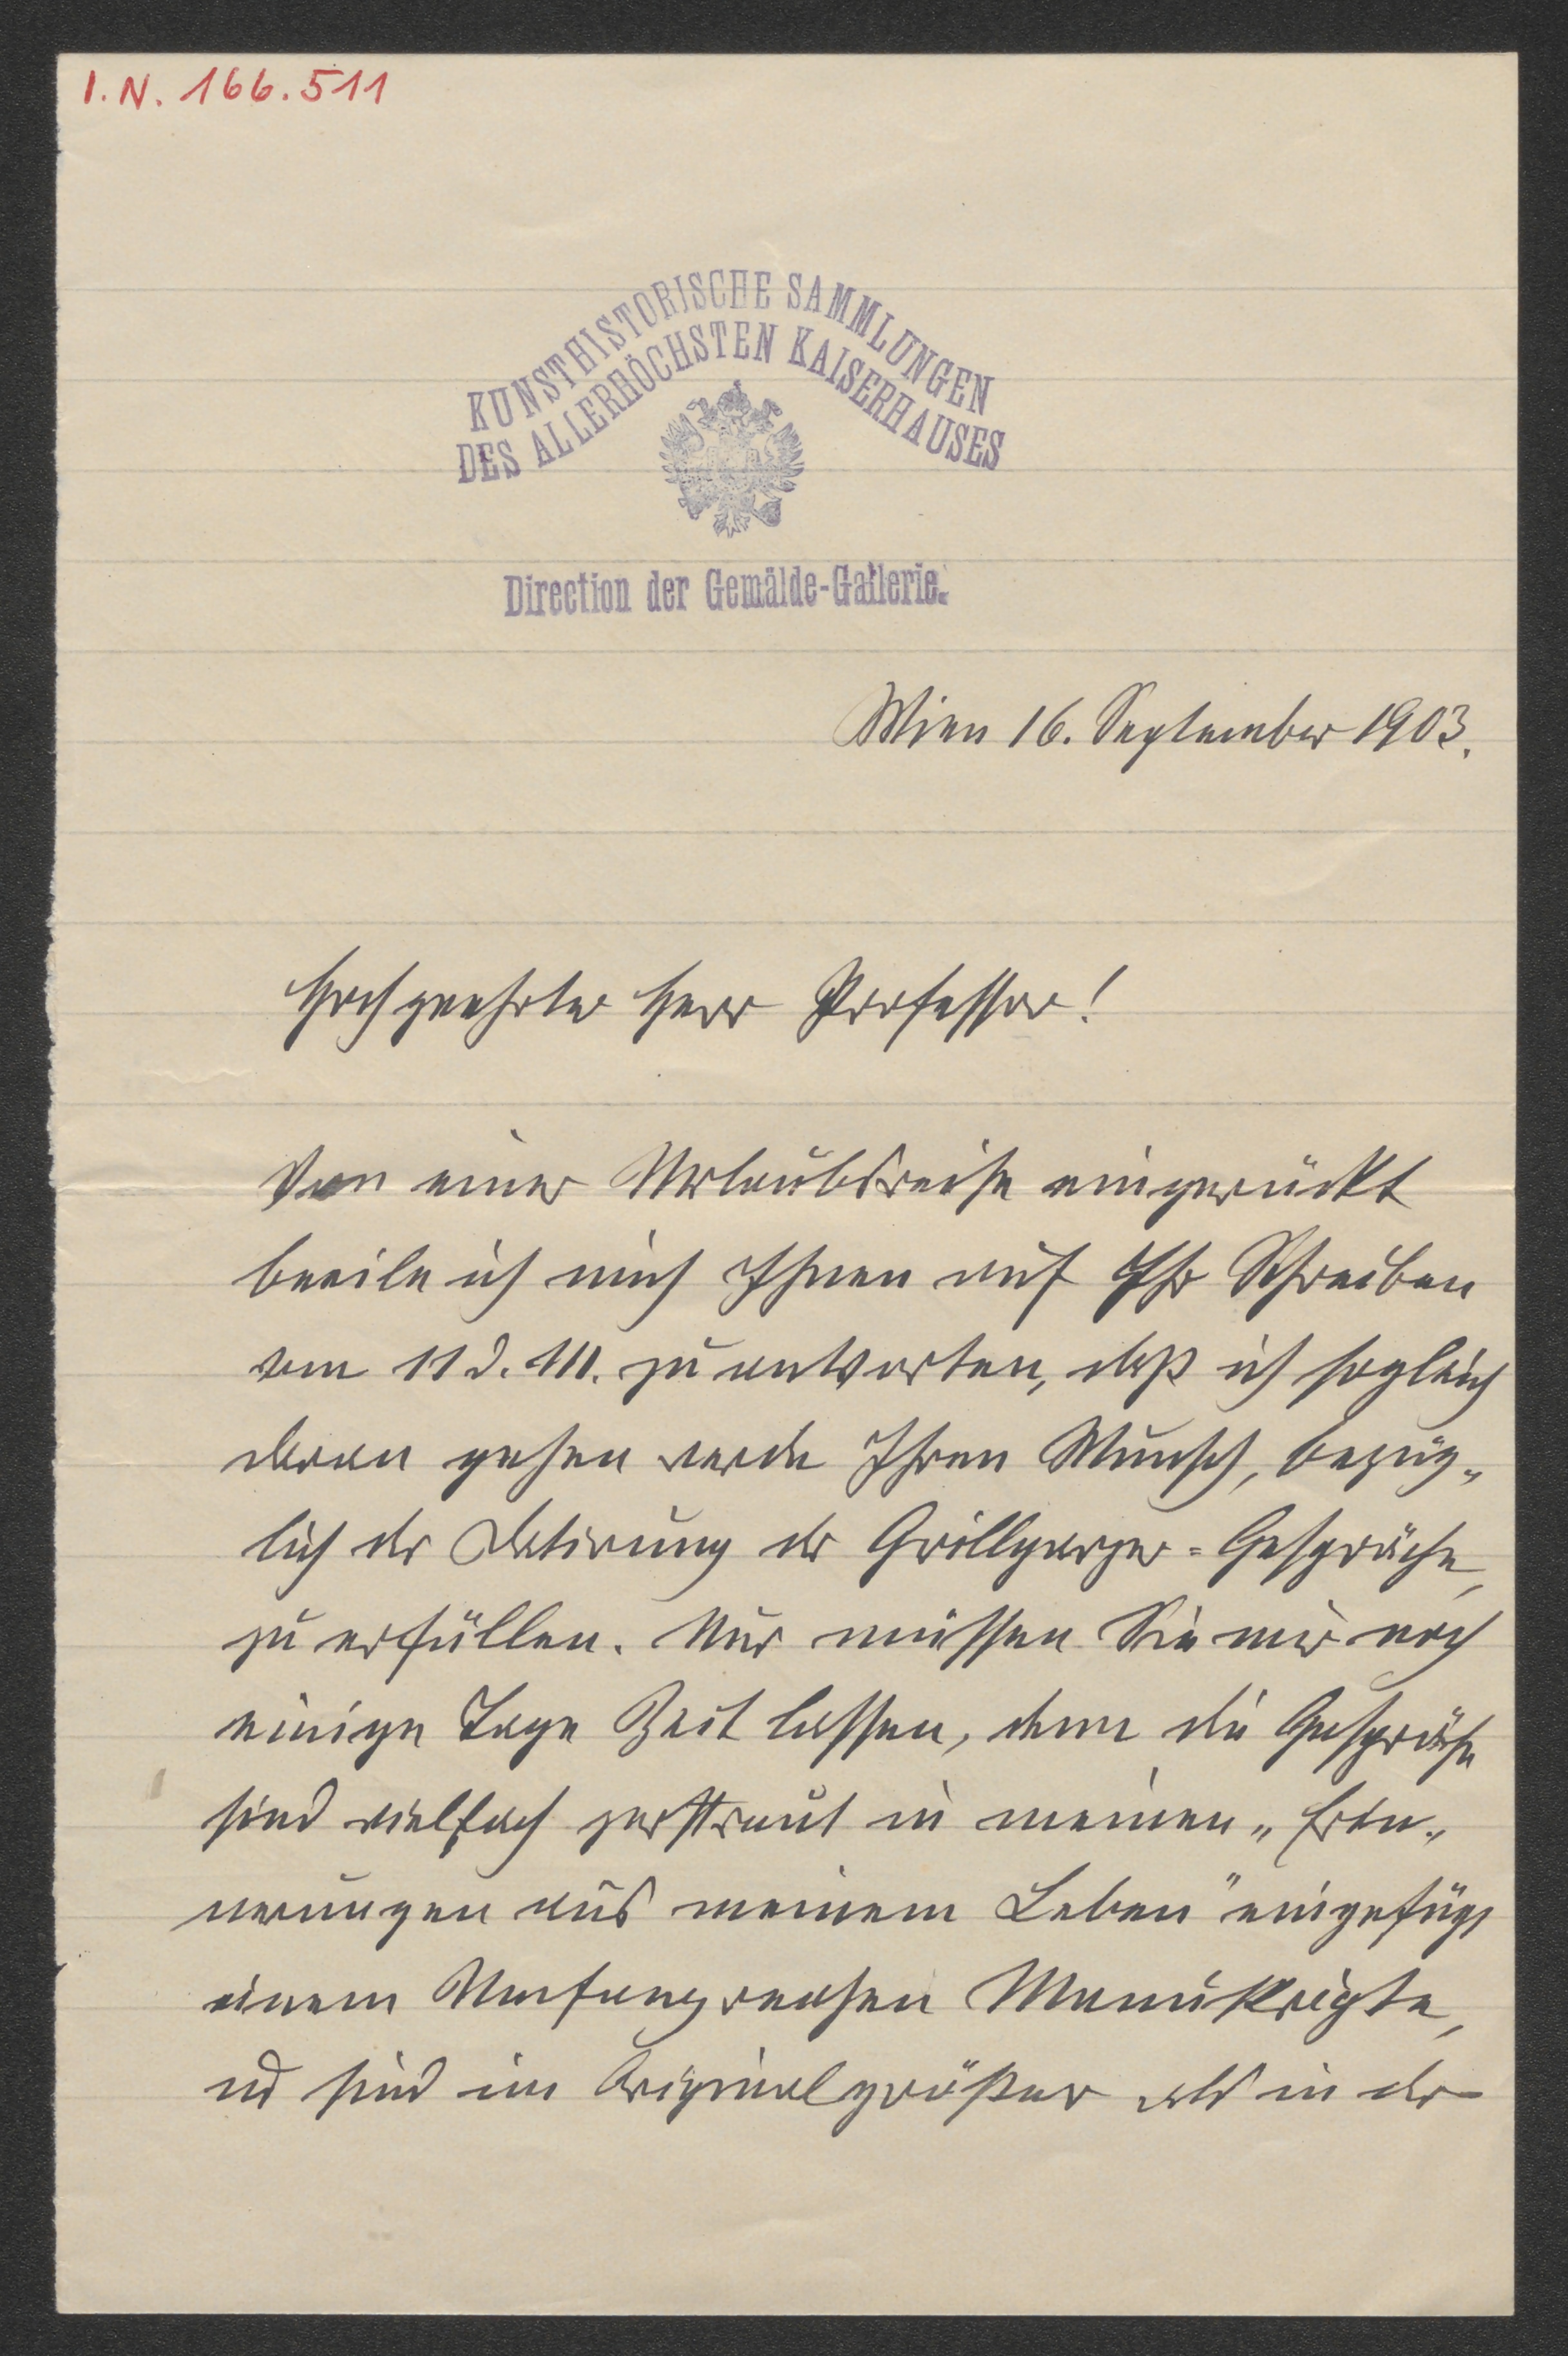 I.N. 166.511
KUNSTHISTORISCHE SAMMLUNGEN
DES ALLERHÖCHSTEN KAISERHAUSES
Direction der Gemälde-Gallerie.
Wien 16. September 1903.
Hochgeehrter Herr Professor!
Von einer Urlaubsreise eingerückt
beeile ich mich Ihnen auf Ihr Schreiben
vom 11 d. M. zu antworten, daß ich sogleich
daran gehen werde Ihren Wunsch, bezüg„
lich der Datirung der Grillparzer-Gespräche,
zu erfüllen. Nur müssen Sie mir noch
einige Tage Zeit lassen, denn die Gespräche
sind vielfach zerstreut in meinen „Erin„
nerungen aus meinem Leben" eingefügt
einem Umfangreichen Manuskripte,
und sind im Original größer als in der